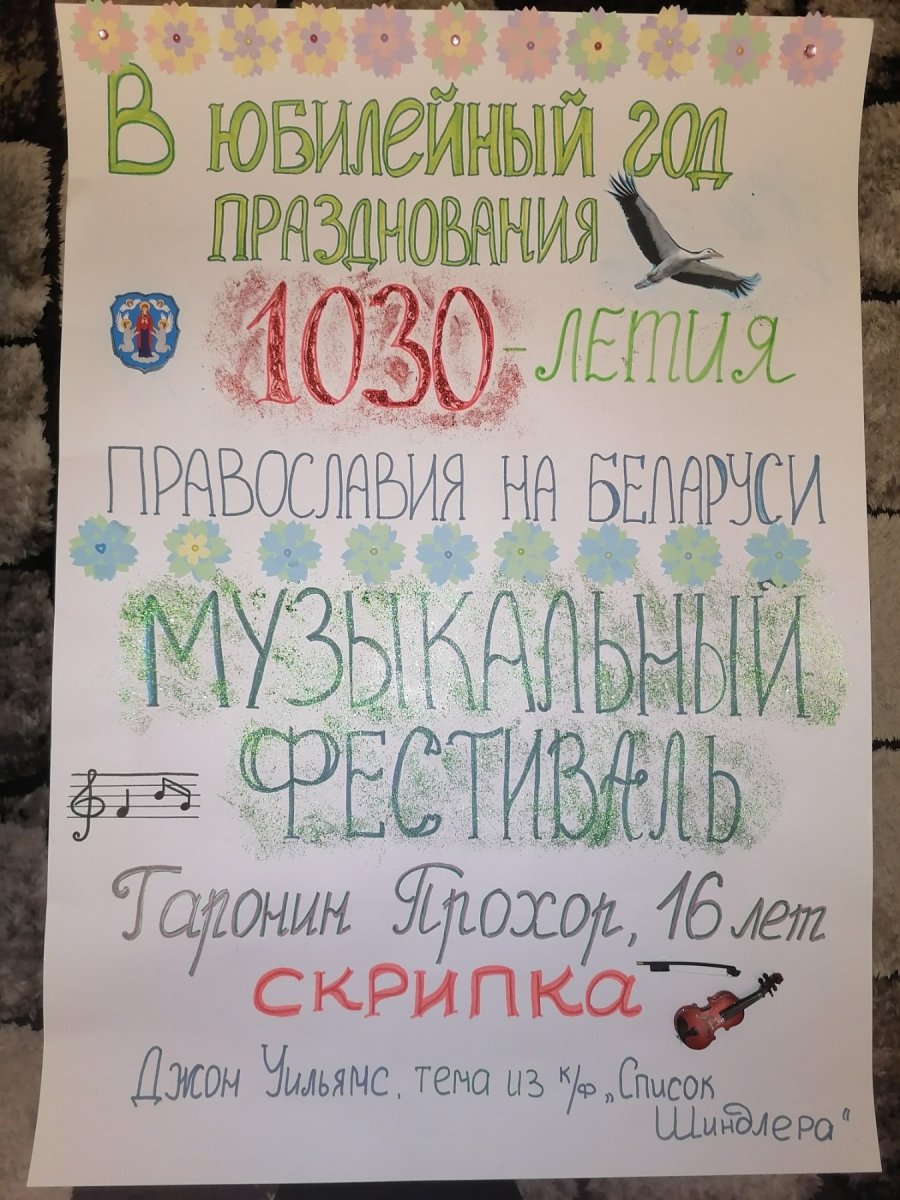 В ЮБИЛЕЙНЫЙ ГОД
ПРАЗДНОВАНИЯ
1030-ЛЕТИЯ
ПРАВОСЛАВИЯ НА БЕЛАРУСИ
МУЗЫКАЛЬНЫЙ
ФЕСТИВАЛЬ
Гаронин Прохор, 16 лет
СКРИПКА
Джон Уильямс, тема из к/ф „Список
Шиндлера“